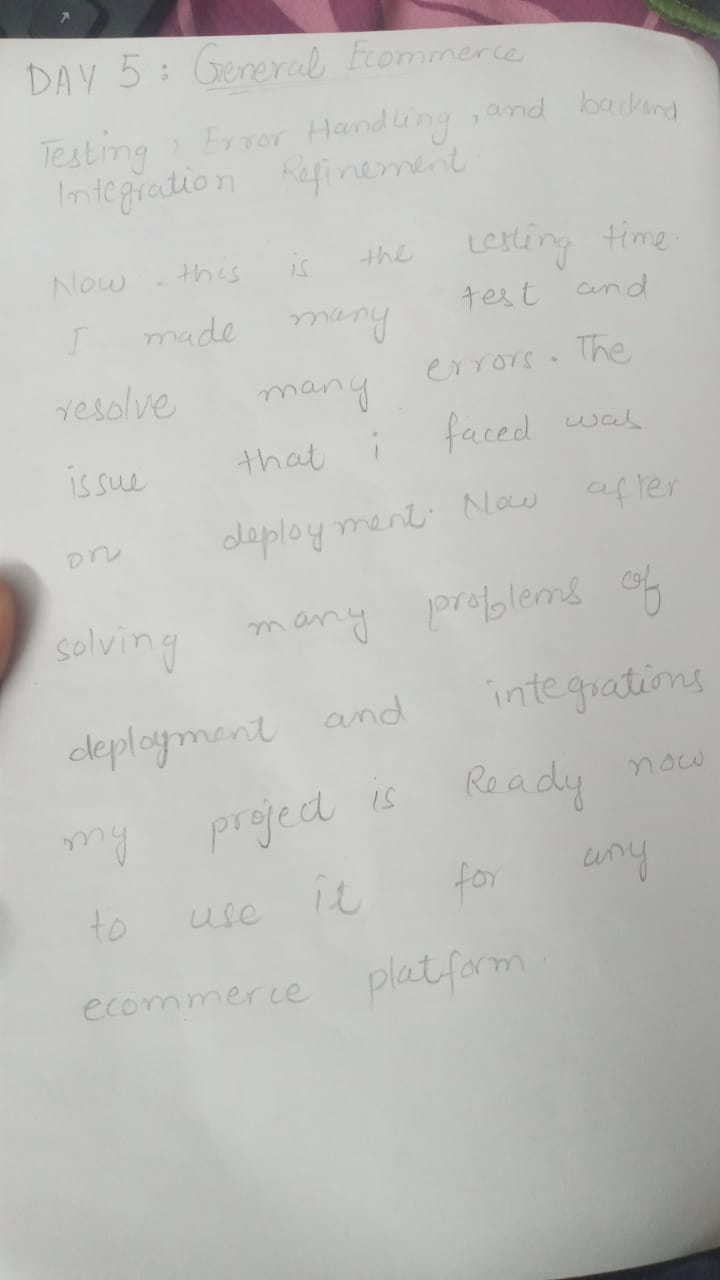 DAY 5 : General Ecommerce
Testing, Error Handling, and backend
Integration Refinement
Now . this is the testing time.
I made many test and
resolve many errors. The
issue that i faced was
on deployment. Now after
solving many problems of
deployment and integrations
my project is Ready now
to use it for any
ecommerce platform.